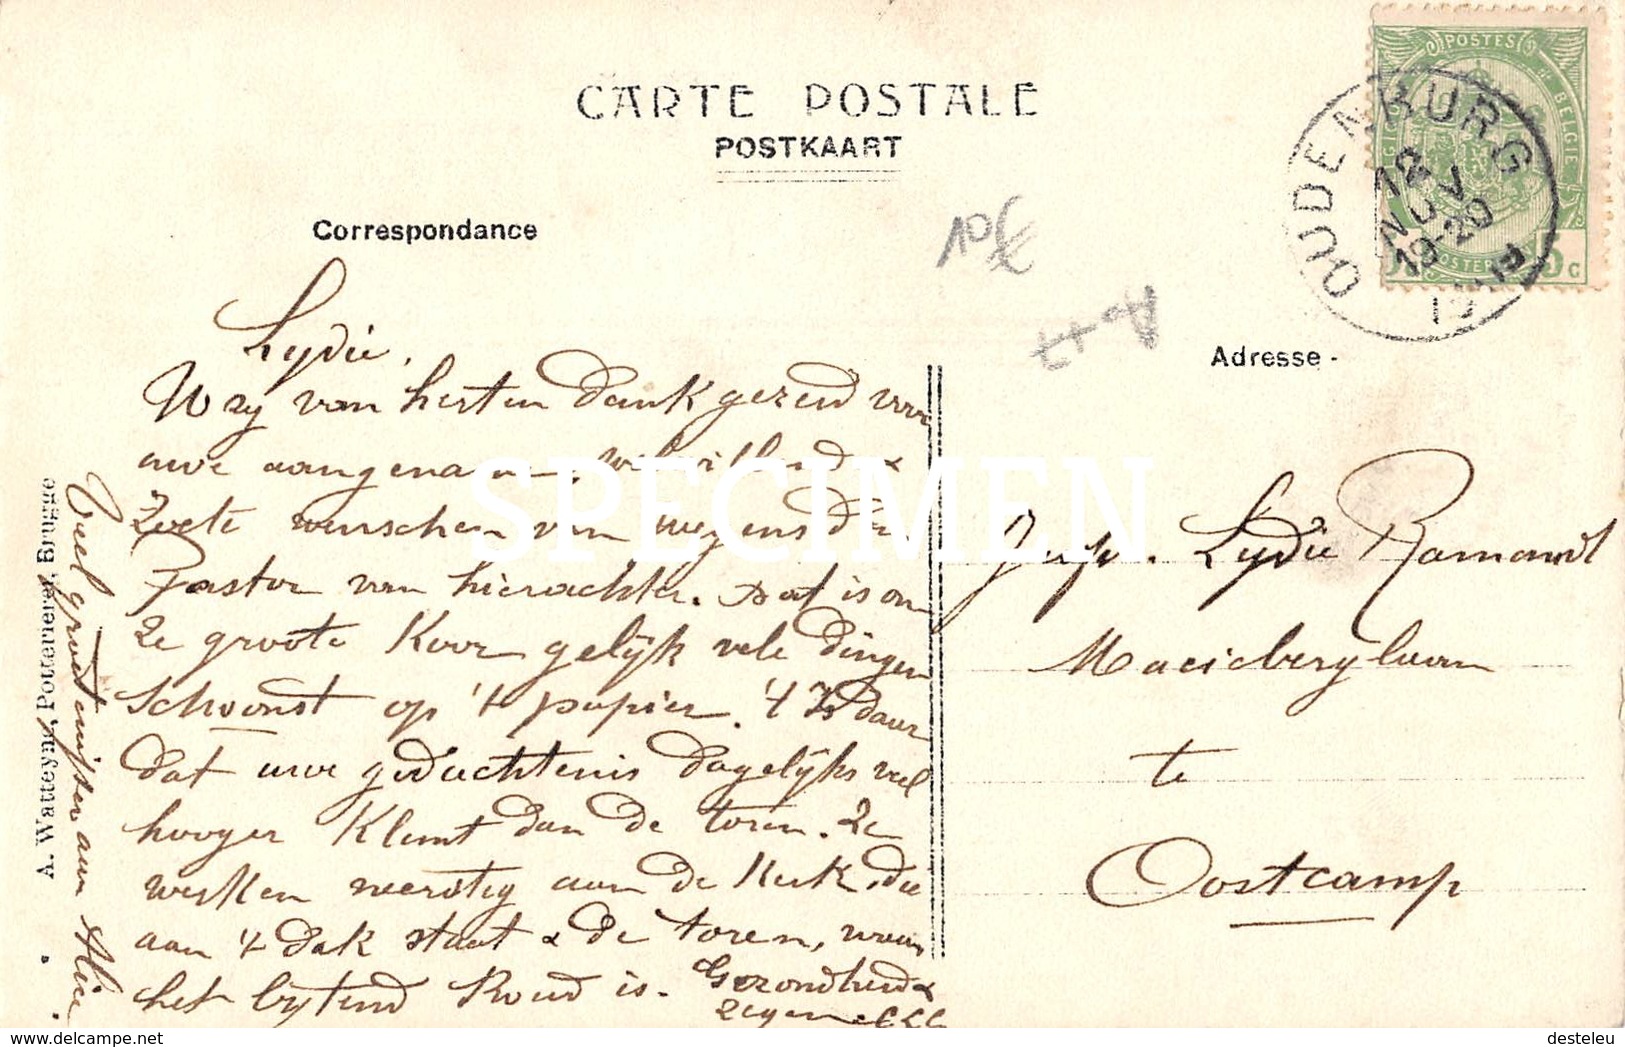 CARTE POSTALE
POSTKAART
POSTES
BELGIE
5 c
OUDENBURG
12
NOV
1920
10€
Correspondance
Lydie.
Wzy van herten dank gezeid voor
uwe aangenam, welwillend &
Zoete wenschen van wegens den
Pastor van hierachter. Dat is on
ze groote Koor gelijk vele dingen
schoonst op 't papier. 't Is daar
dat uwe gedachtenis dagelijks veel
hooger klimt dan de toren. Ze
werken neerstig aan de Kerk, die
aan 't dak staat & de toren, waar
het bijtend koud is. Gezondheid &
zegen
Veel groetenissen aan Alice.
A. Watteyne, Potterierei, Brugge
Adresse -
Jufr. Lydie Ramondt
Macieberglaan
te
Oostcamp
SPECIMEN
delcampe.net
desteleu